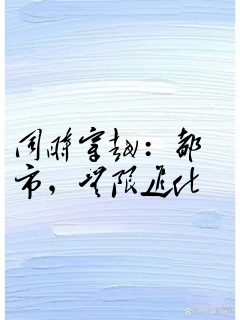 同时穿越：都
市，无限进化